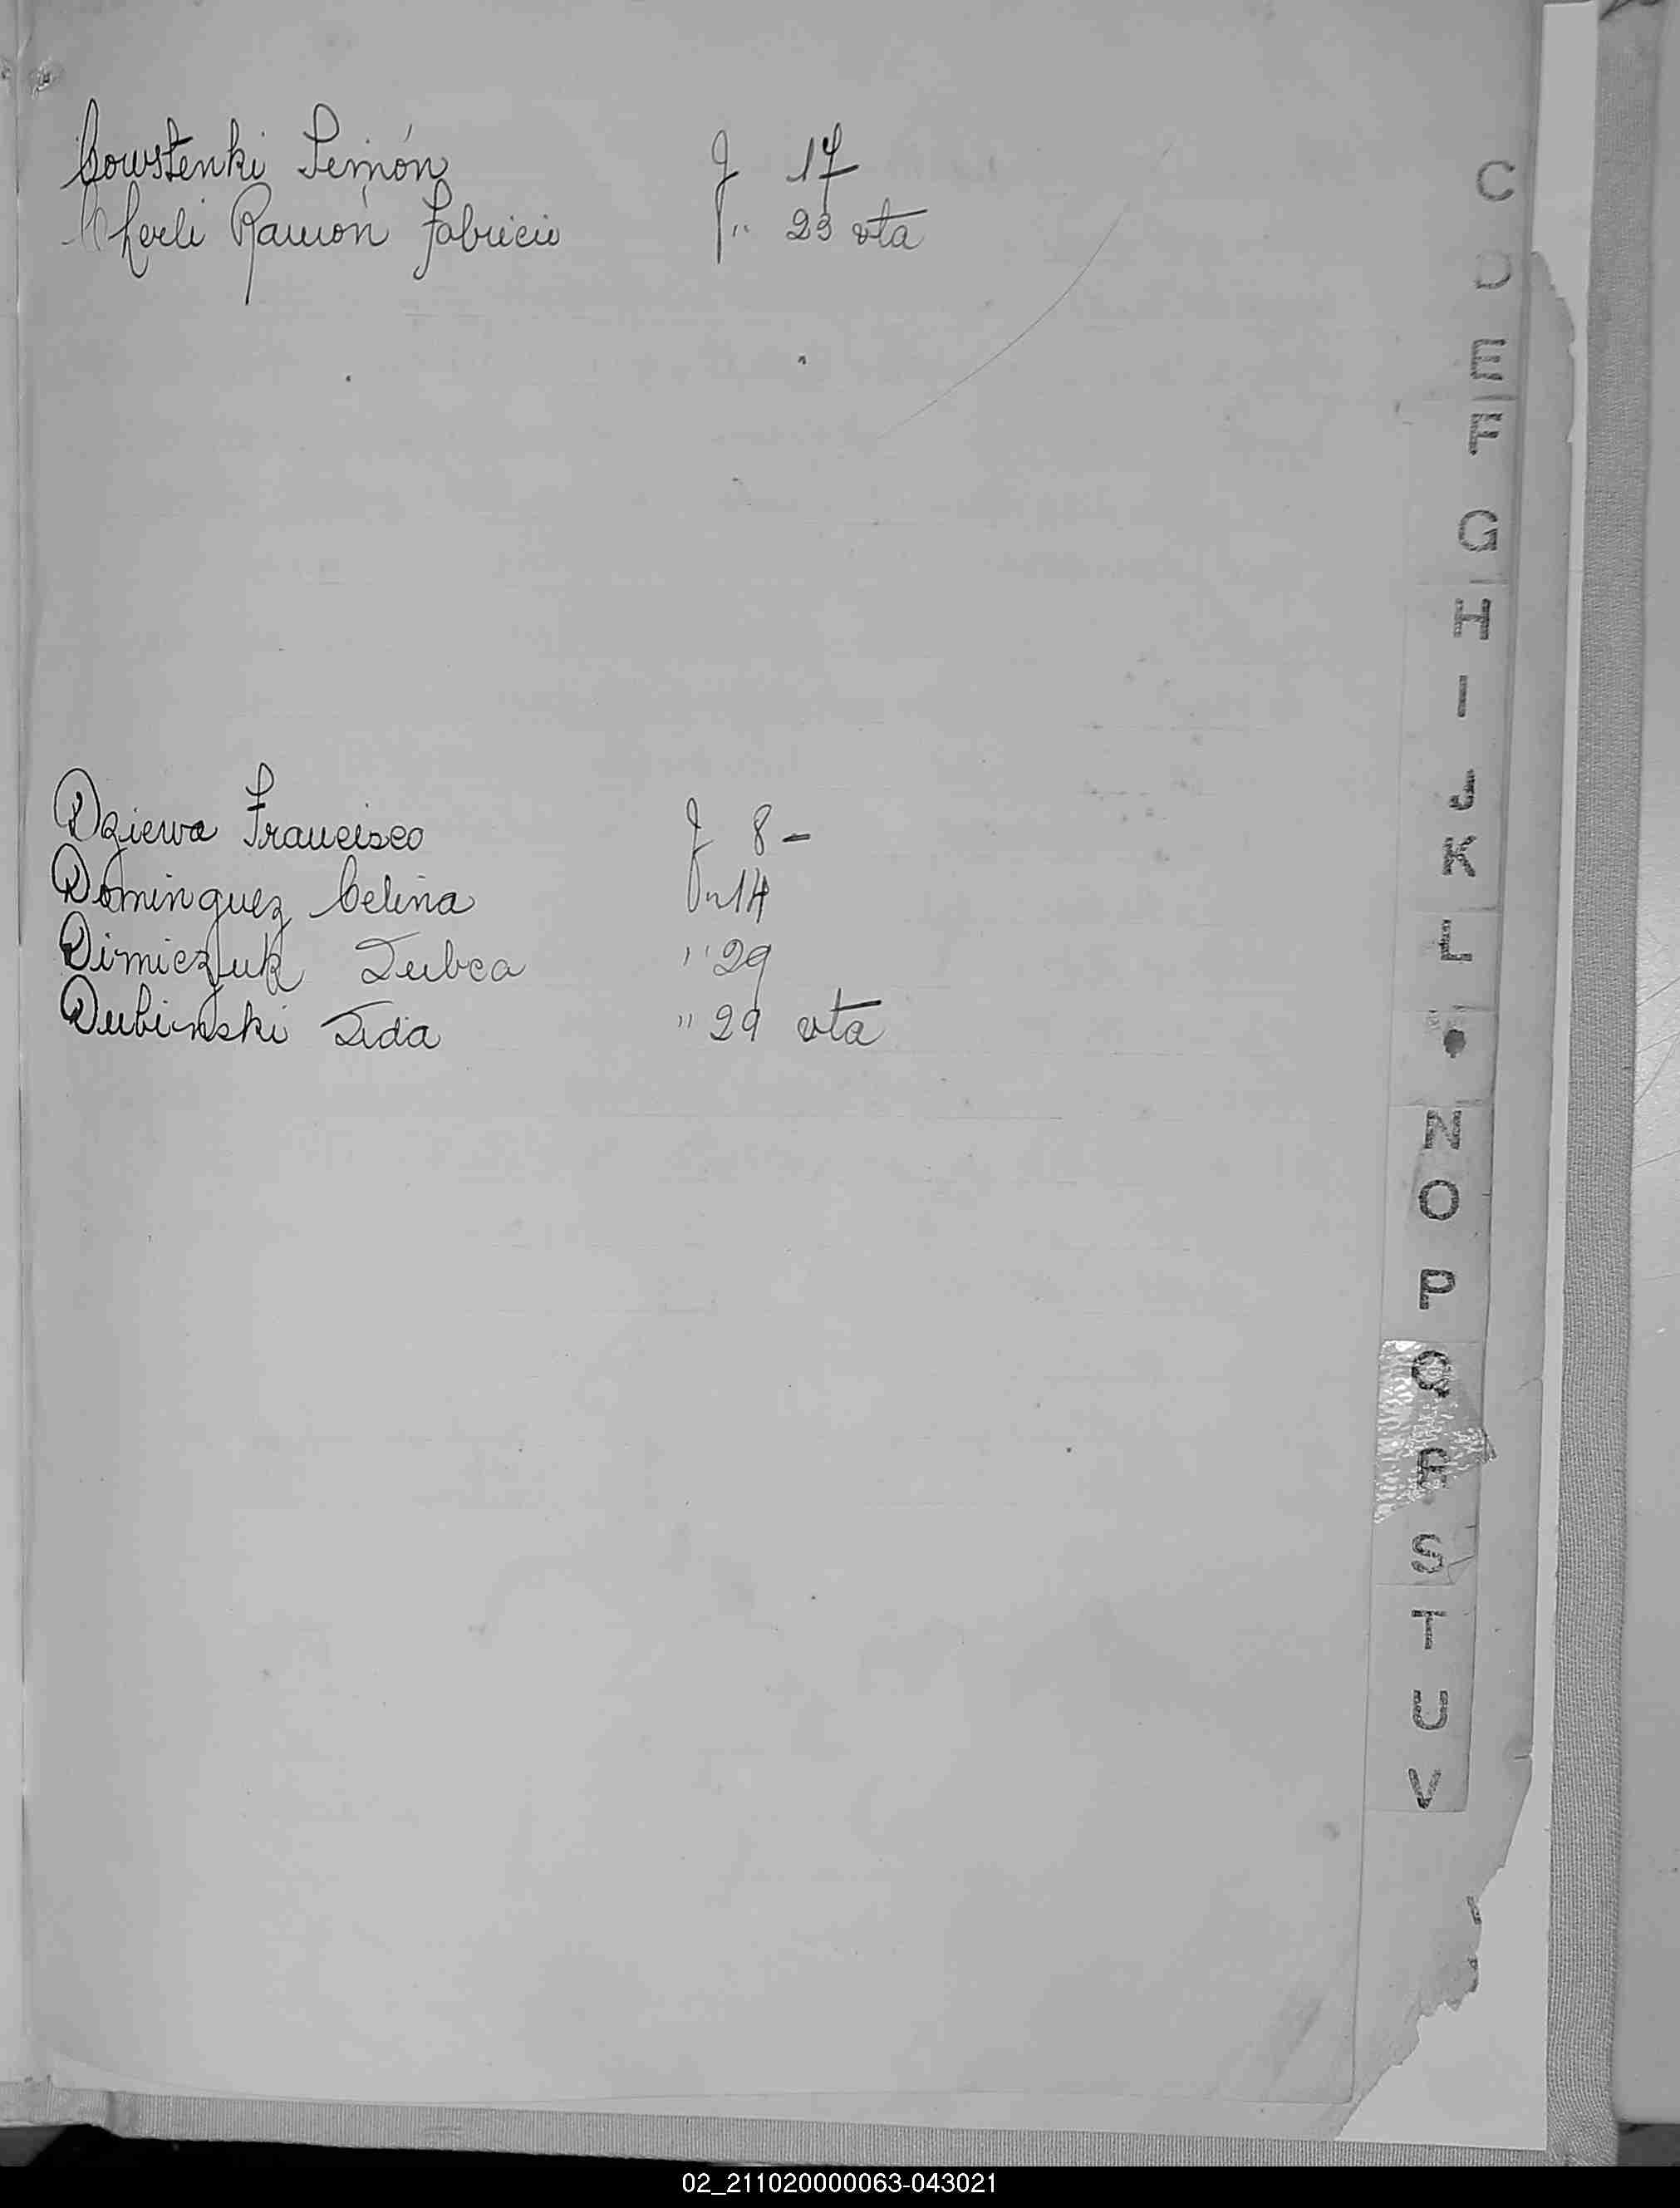 Cowstenki Simón f 17
Cherli Ramón Fabricio f " 23 vta
Dziewa Francisco f 8 -
Dominguez Celina f " 14
Dimiczuk Lubca " 29
Dubinski Lida " 29 vta
C
D
E
F
G
H
I
J
K
L
N
O
P
Q
R
S
T
U
V
02_211020000063-043021